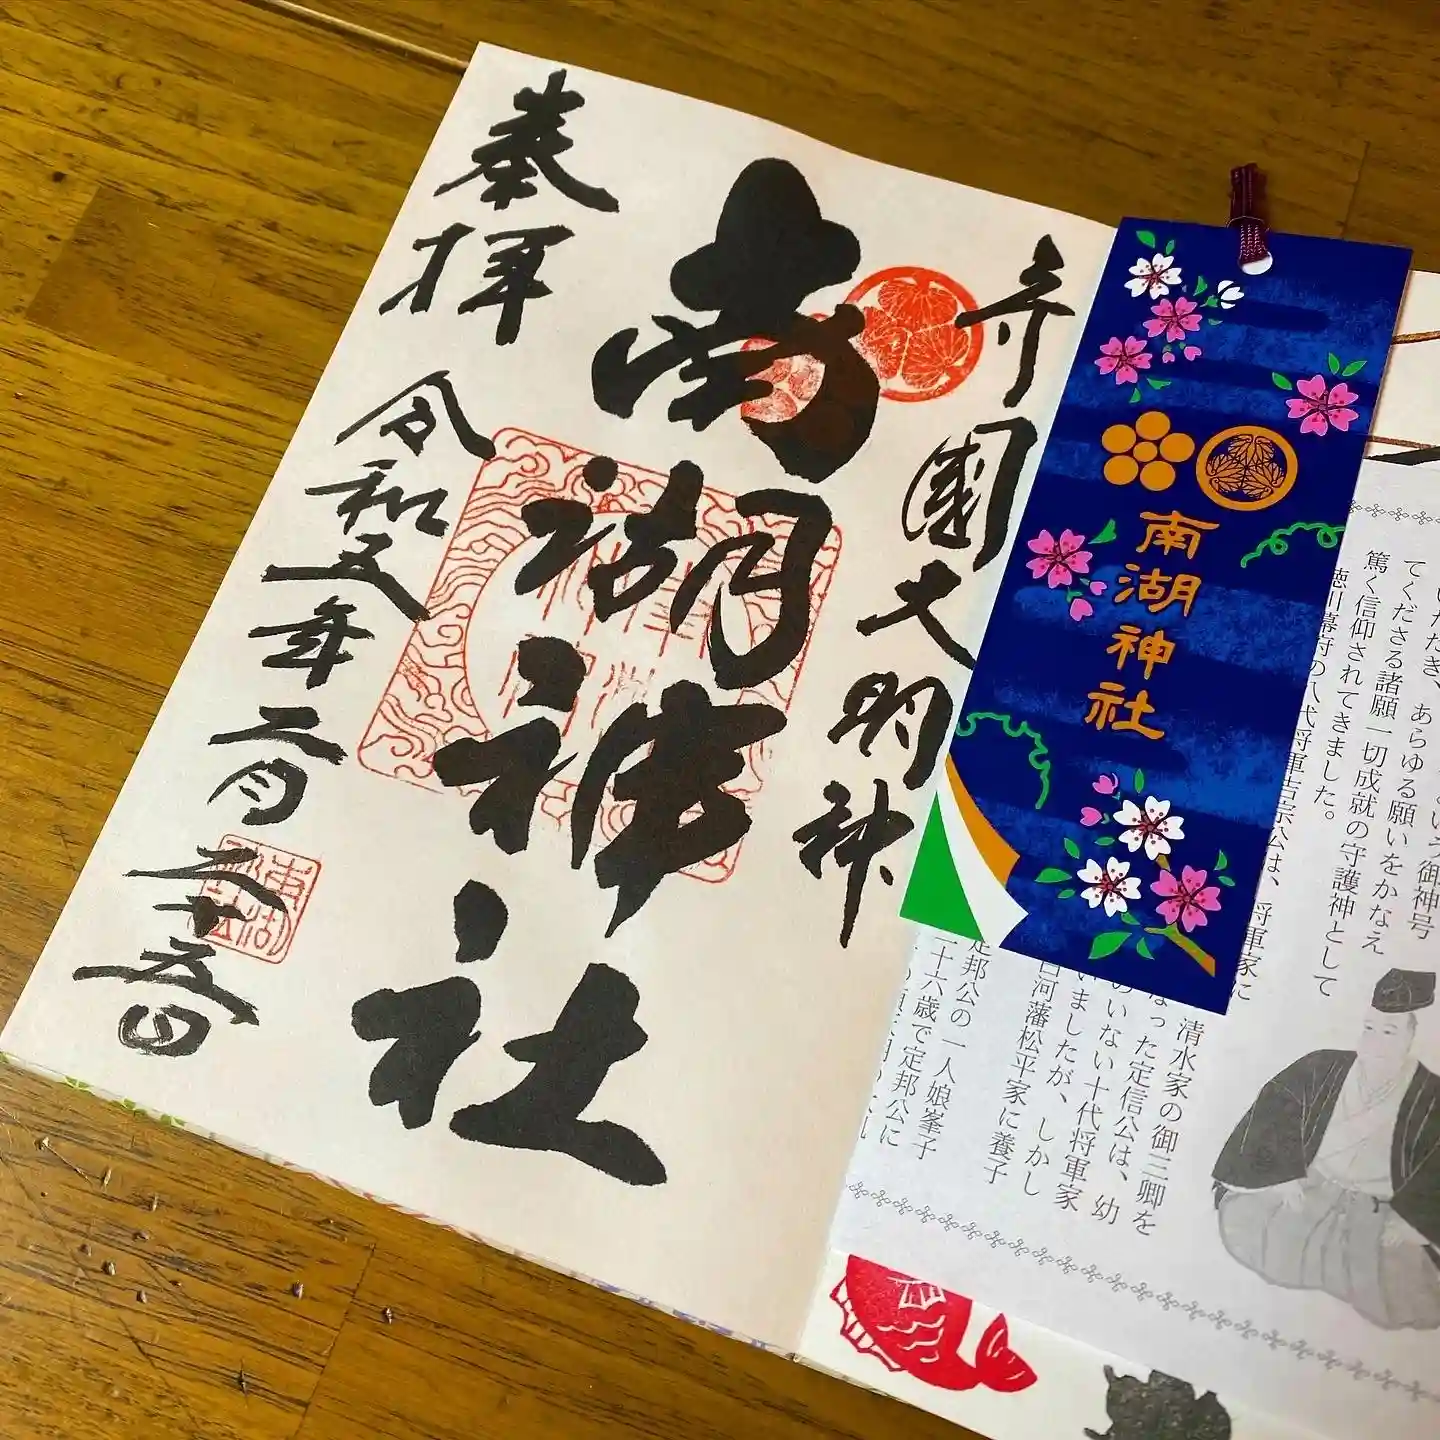 守國大明神
南湖神社
奉拝
令和五年二月二十五日
南湖神社
あらゆる願いをかなえ
てくださる諸願一切成就の守護神として
篤く信仰されてきました。
徳川幕府の八代将軍吉宗公は、将軍家に
清水家の御三卿を
なった定信公は、幼
のいない十代将軍家
いましたが、しかし
白河藩松平家に養子
定邦公の一人娘峯子
二十六歳で定邦公に